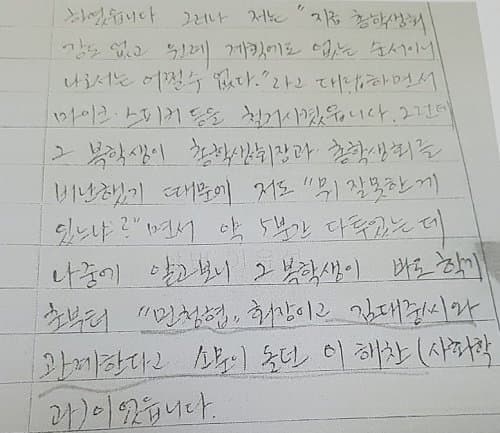 하였습니다 그러나 저는 "지금 총학생회
감도 없고 원래 계획에도 없는 순서이니
나로서는 어쩔수 없다."라고 대답하면서
마이크·스피커 등을 철거시켰읍니다. 그런데
그 복학생이 총학생회장과 총학생회를
비난했기 때문에 저도 "뭐 잘못한게
있느냐?"면서 약 5분간 다투었는데
나중에 알고보니 그 복학생이 바로 학기
초부터 "민청협" 회장이고 김대중씨와
관계한다고 소문이 돌던 이해찬(사회학
과)이었읍니다.